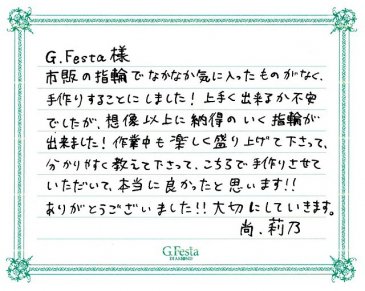 G.Festa様
市販の指輪でなかなか気に入ったものがなく、
手作りすることにしました！上手く出来るか不安
でしたが、想像以上に納得のいく指輪が
出来ました！作業中も楽しく盛り上げて下さって、
分かりやすく教えて下さって、こちらで手作りさせて
いただいて、本当に良かったと思います！！
ありがとうございました！！大切にしていきます。
尚、莉乃
G.Festa
DIAMOND